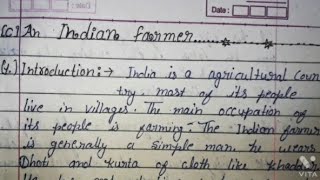 Date :
(C) An Indian farmer......
(1.) Introduction:→ India is a agricultural coun
try. mast of its people
live in villages. The main occupation of
its people is farming. The Indian farmer
is generally a simple man. he wears
Dhoti and kurta of cloth like khadar
VITA